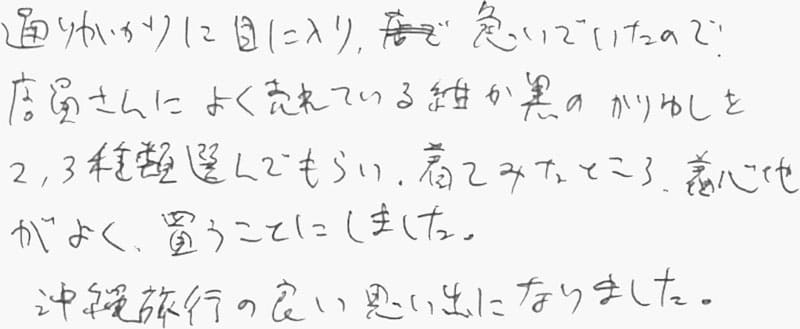 通りがかりに目に入り、急いでいたので、
店員さんによく売れている紺か黒のかりゆしを
2,3種類選んでもらい、着てみたところ、着心地
がよく、買うことにしました。
沖縄旅行の良い思い出になりました。